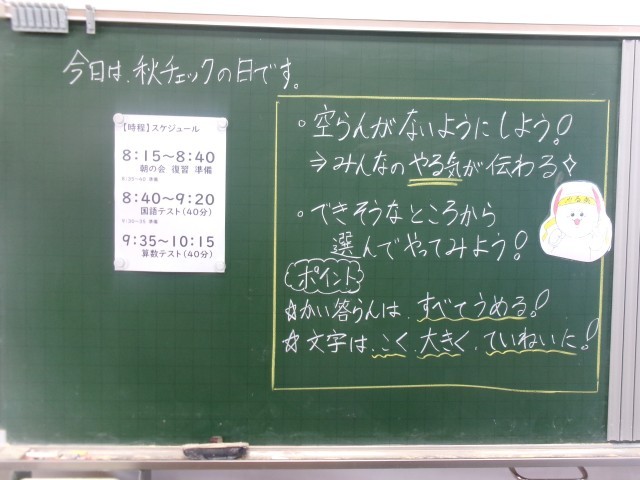 今日は、秋チェックの日です。
【時程】スケジュール
8:15～8:40
朝の会 復習 準備
8:40～9:20
国語テスト(40分)
9:35～10:15
算数テスト(40分)
。空らんがないようにしよう!
⇒みんなのやる気が伝わる☆
。できそうなところから
選んでやってみよう!
ポイント
☆かい答らんは、すべてうめる!
☆文字は、こく、大きく、ていねいに!